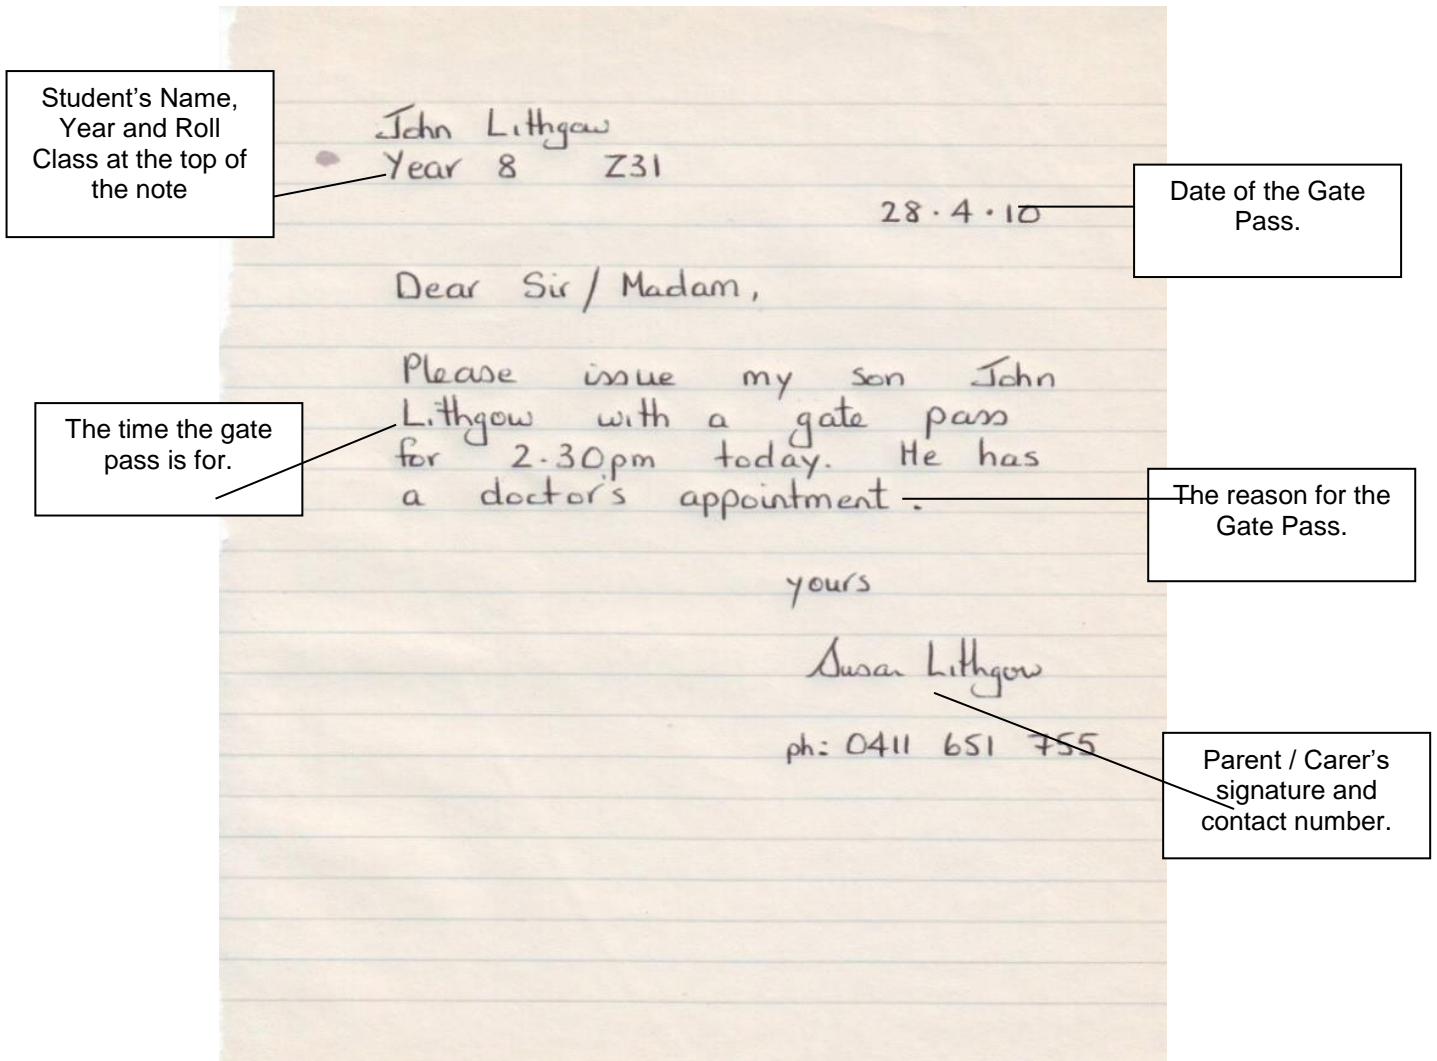 Student’s Name,
Year and Roll
Class at the top of
the note
John Lithgow
Year 8 Z31
Date of the Gate
Pass.
28.4.10
Dear Sir / Madam,
Please issue my son John
Lithgow with a gate pass
for 2.30pm today. He has
a doctor's appointment.
The time the gate
pass is for.
The reason for the
Gate Pass.
yours
Susan Lithgow
ph: 0411 651 755
Parent / Carer’s
signature and
contact number.